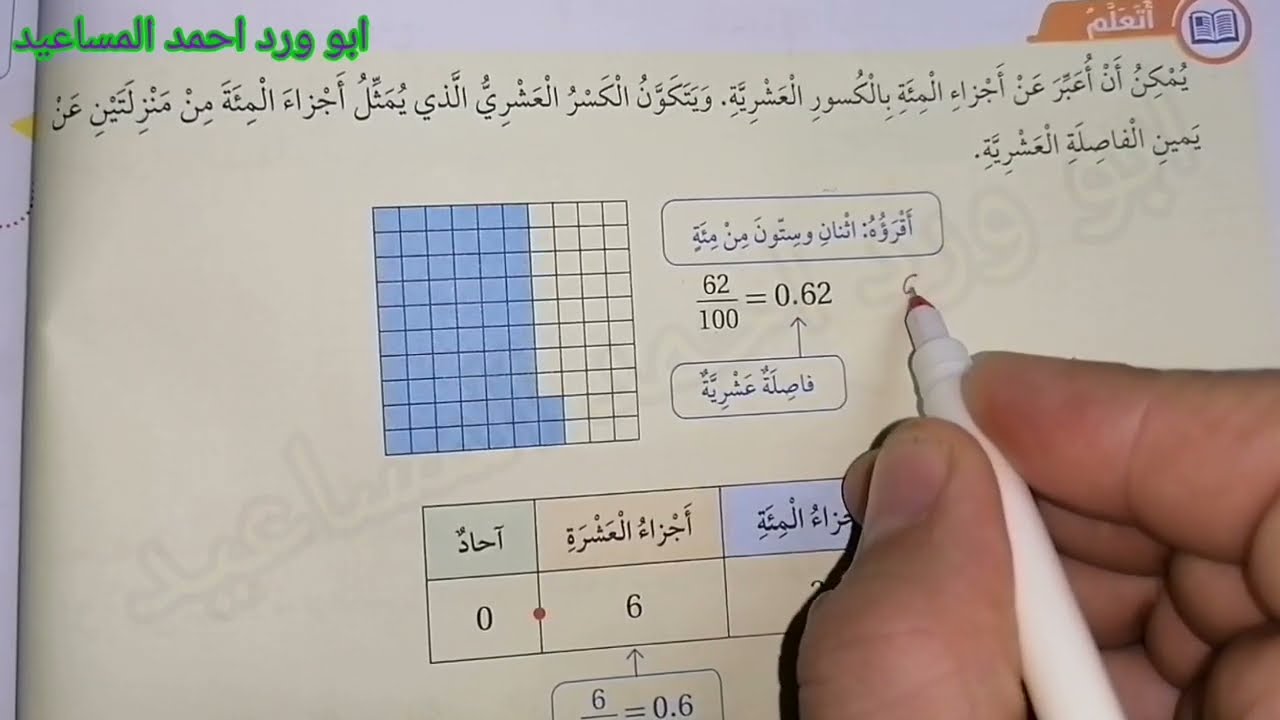 ابو ورد احمد المساعيد
أَتَعَلَّمُ
يُمْكِنُ أَنْ أُعَبِّرَ عَنْ أَجْزاءِ الْمِئَةِ بِالْكُسورِ الْعَشْرِيَّةِ. وَيَتَكَوَّنُ الْكَسْرُ الْعَشْرِيُّ الَّذي يُمَثِّلُ أَجْزاءَ الْمِئَةِ مِنْ مَنْزِلَتَيْنِ عَنْ
يَمينِ الْفاصِلَةِ الْعَشْرِيَّةِ.
أَقْرَؤُهُ: اثْنانِ وسِتّونَ مِنْ مِئَةٍ
62/100 = 0.62
فاصِلَةٌ عَشْرِيَّةٌ
آحادٌ أَجْزاءُ الْعَشْرَةِ الْمِئَةِ
0 . 6
6
= 0.6